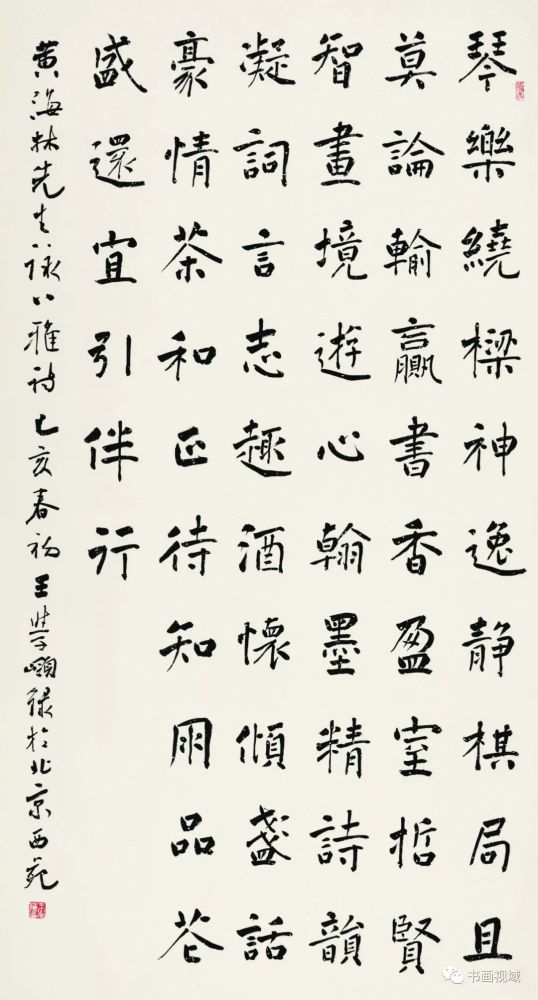 琴樂繞樑神逸靜棋局且
莫論輸贏書香盈室哲賢
智畫境遊心翰墨精詩韻
凝詞言志趣酒懷傾盞話
豪情茶和正待知朋品花
盛還宜引伴行
黄海林先生八詠八雅詩己亥春初王學嶺録於北京西苑
书画视域